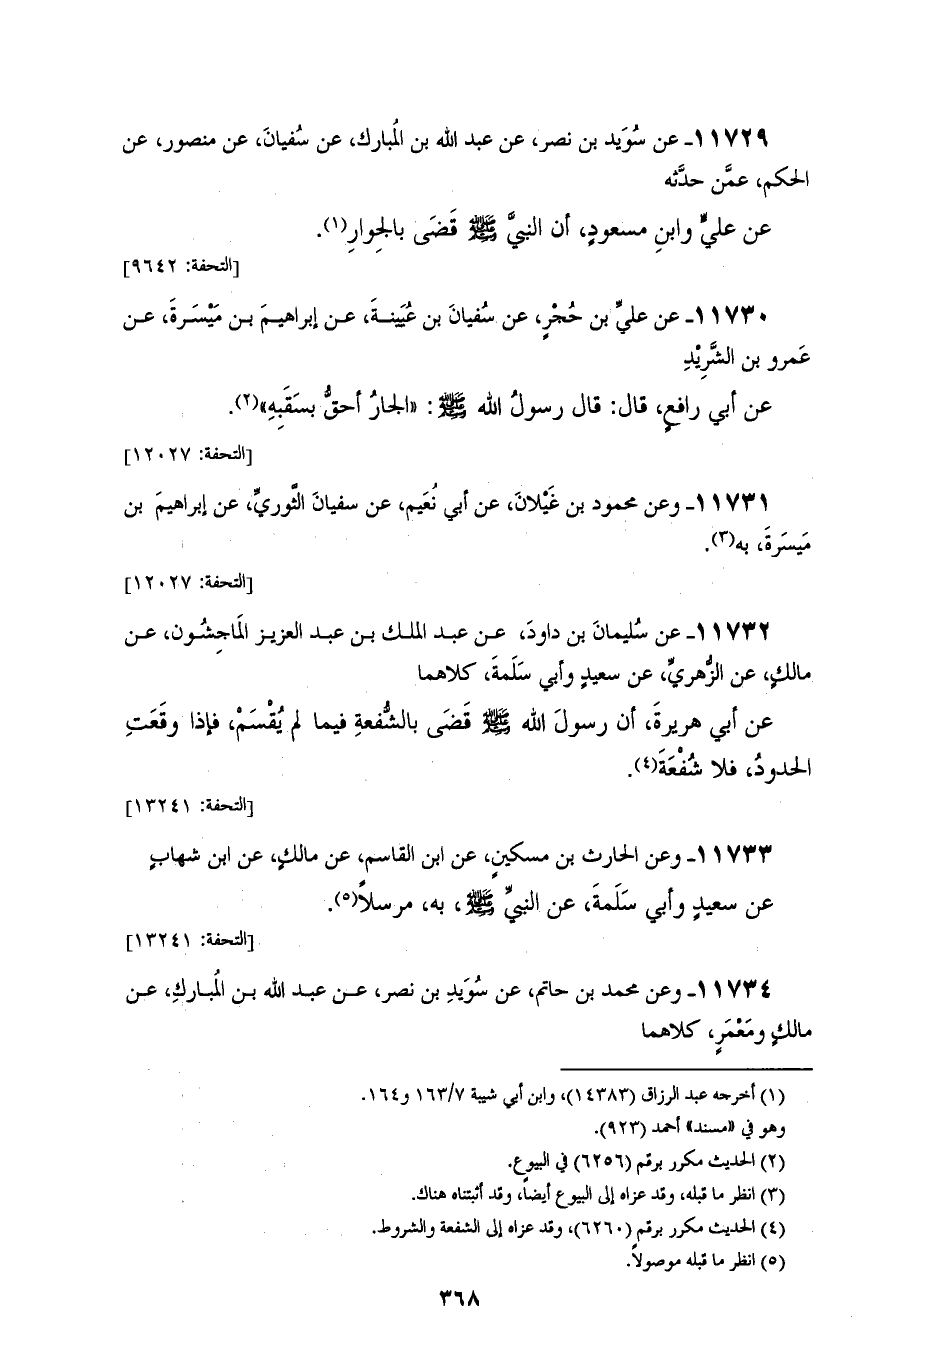 ١١٧٢٩ـ عن سُوَيد بن نصر، عن عبد الله بن الُمبارك، عن سُفيانَ، عن منصور، عن
الحكم، عمَّن حدَّثه
عن عليٍّ وابنِ مسعودٍ، أن النبيَّ ﷺ قَضَى بالجِوارِ(١).
[التحفة: ٩٦٤٢]
١١٧٣٠ـ عن عليِّ بن حُجْرٍ، عن سُفيانَ بن عُيَينـةَ، عـن إبراهيـمَ بـن مَيْسَـرةَ، عـن
عَمرو بن الشَّرِيْدِ
عن أبي رافعٍ، قال: قال رسولُ الله ﷺ: «الجارُ أحقُّ بسَقَبِهِ»(٢).
[التحفة: ١٢٠٢٧]
١١٧٣١ـ وعن محمود بن غَيْلانَ، عن أبي نُعَيم، عن سفيانَ الثَّوريِّ، عن إبراهيمَ بن
مَيسَرةَ، به(٣).
[التحفة: ١٢٠٢٧]
١١٧٣٢ـ عن سُليمانَ بن داودَ، عـن عبـد الملـك بـن عبـد العزيـز الَماجِشُـون، عـن
مالكٍ، عن الزُّهريِّ، عن سعيدٍ وأبي سَلَمةَ، كلاهما
عن أبي هريرةَ، أن رسولَ الله ﷺ قَضَى بالشُّفعةِ فيما لم يُقْسَمْ، فإذا وقَعَتِ
الحدودُ، فلا شُفْعَةَ(٤).
[التحفة: ١٣٢٤١]
١١٧٣٣ـ وعن الحارث بن مسكينٍ، عن ابن القاسم، عن مالكٍ، عن ابن شهابٍ
عن سعيدٍ وأبي سَلَمةَ، عن النبيِّ ﷺ، به، مرسلاً(٥).
[التحفة: ١٣٢٤١]
١١٧٣٤ـ وعن محمد بن حاتم، عن سُوَيدِ بن نصر، عـن عبـد الله بـن الُمبـاركِ، عـن
مالكٍ ومَعْمَرٍ، كلاهما
(١) أخرجه عبد الرزاق (١٤٣٨٣)، وابن أبي شيبة ١٦٣/٧ و١٦٤.
وهو في «مسند» أحمد (٩٢٣).
(٢) الحديث مكرر برقم (٦٢٥٦) في البيوع.
(٣) انظر ما قبله، وقد عزاه إلى البيوع أيضاً، وقد أثبتناه هناك.
(٤) الحديث مكرر برقم (٦٢٦٠)، وقد عزاه إلى الشفعة والشروط.
(٥) انظر ما قبله موصولاً.
٣٦٨